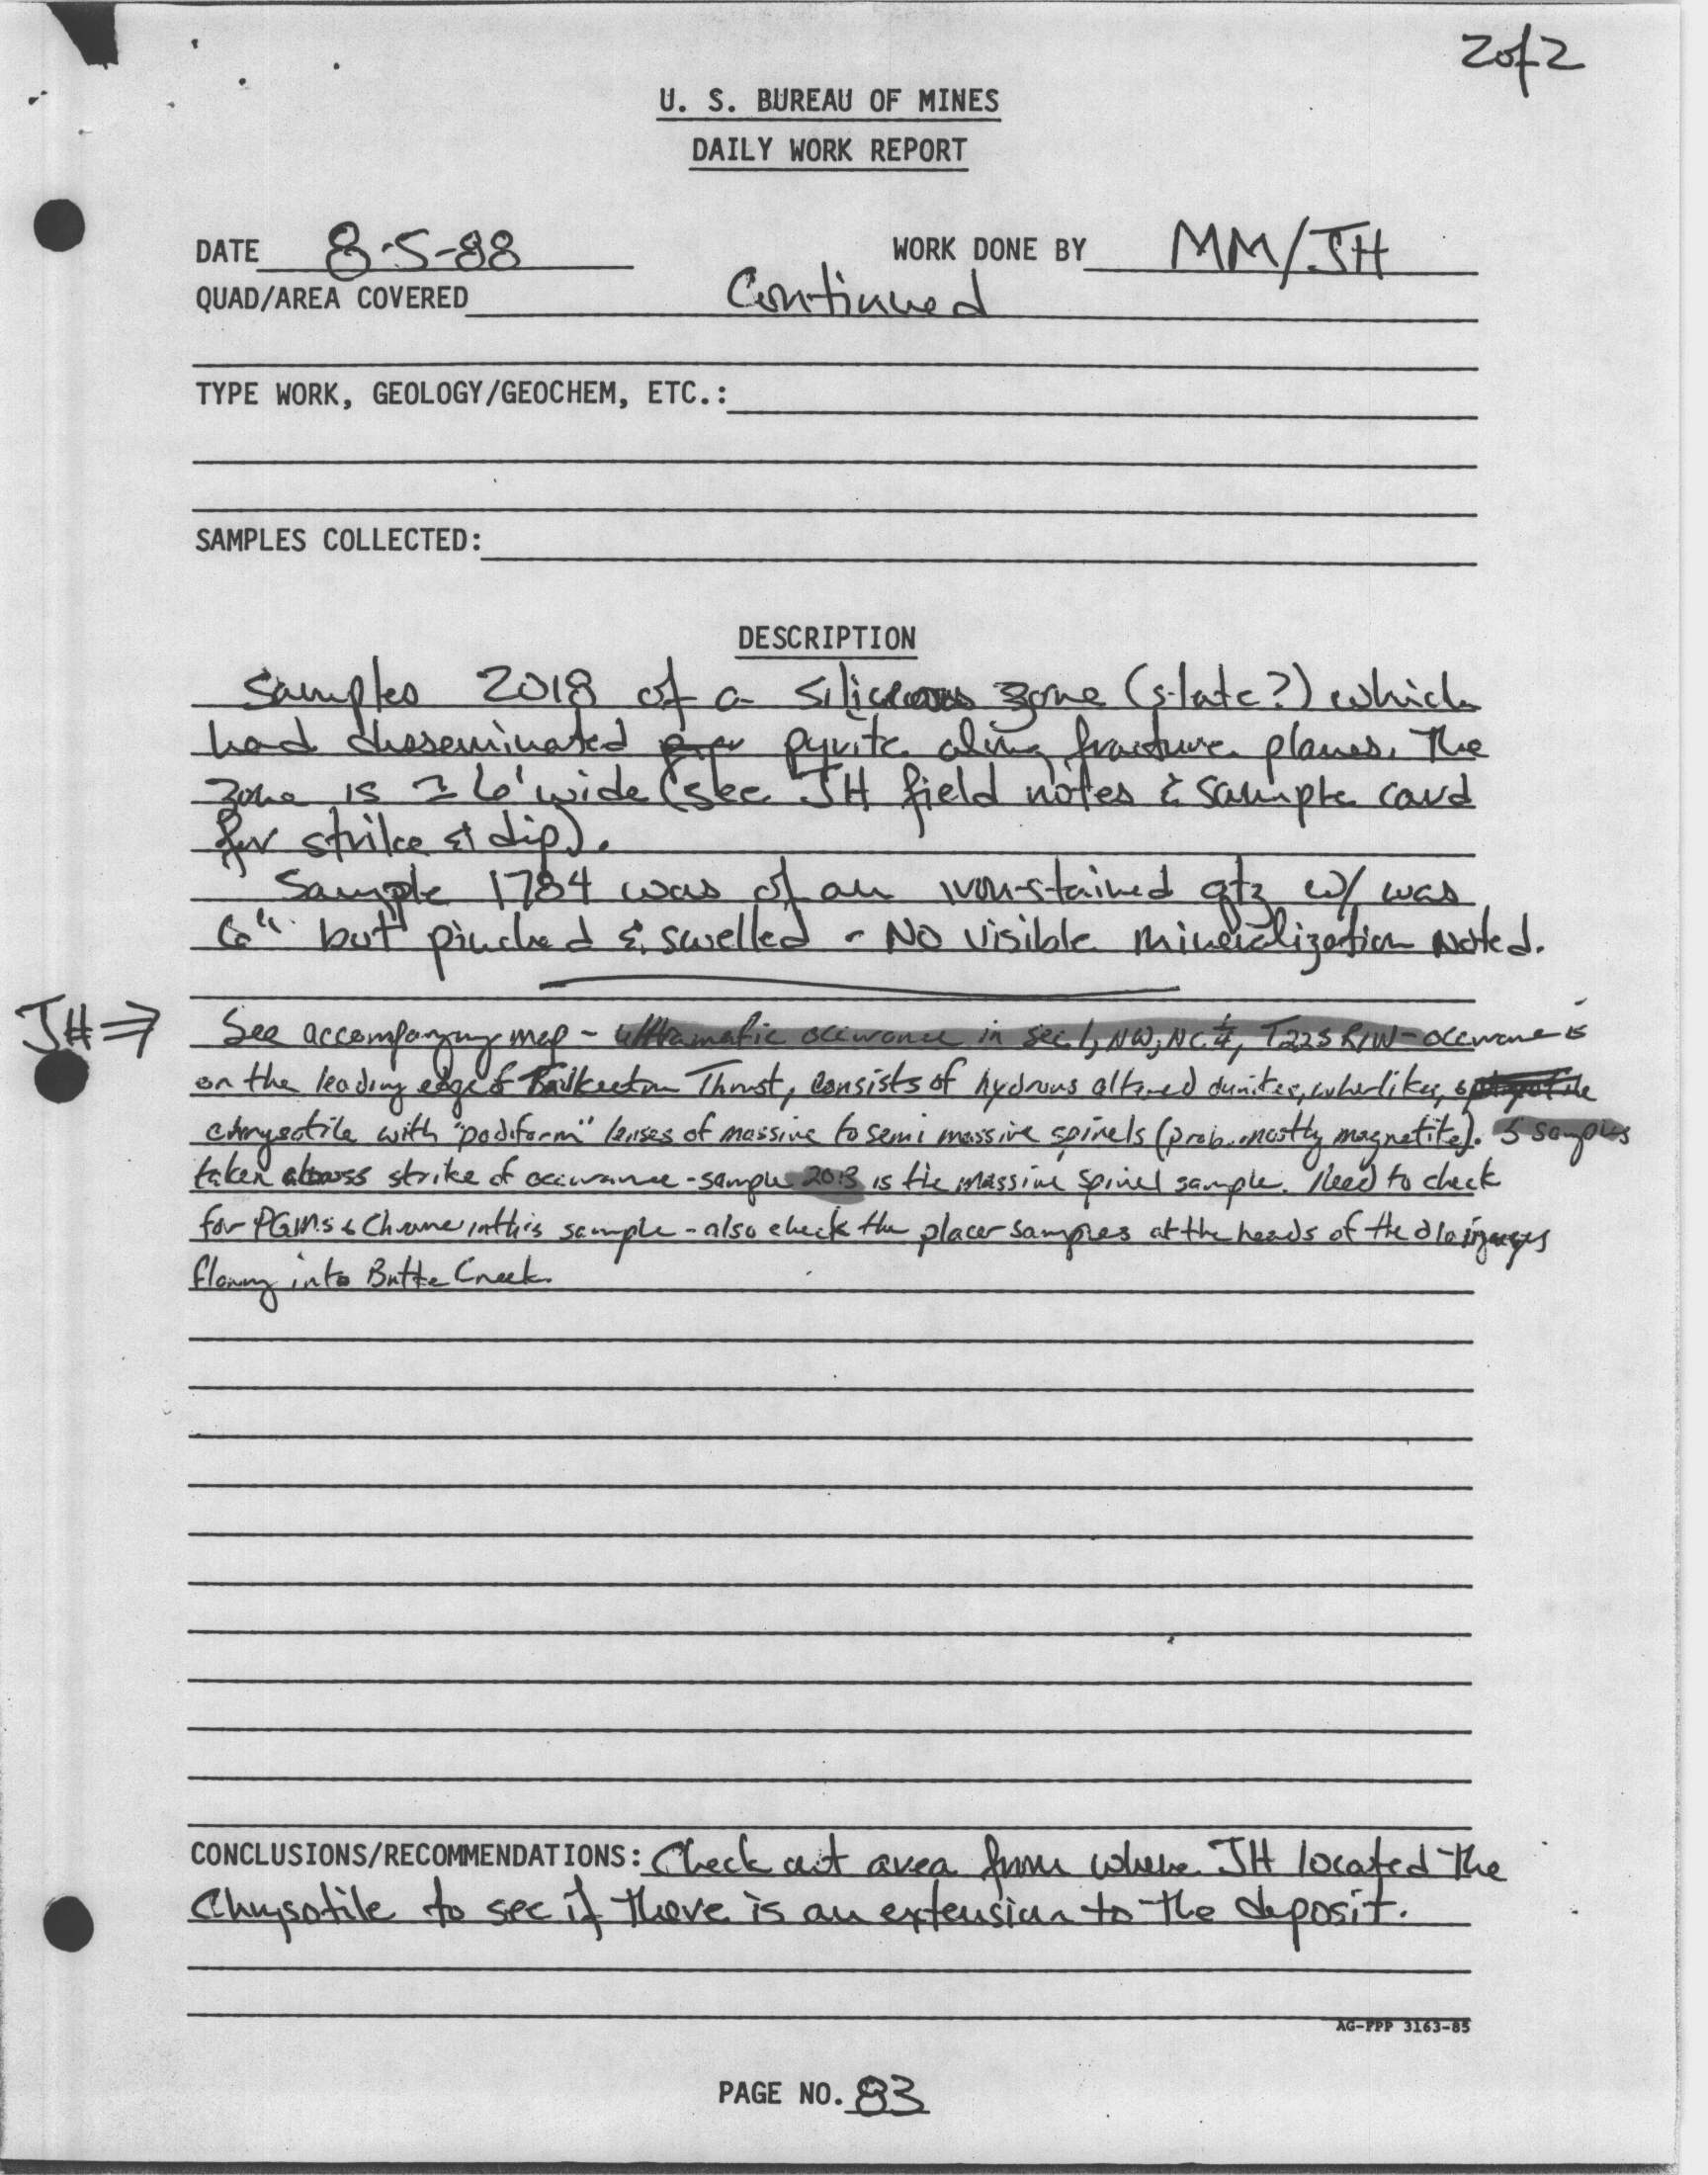 2of2
U. S. BUREAU OF MINES
DAILY WORK REPORT
DATE 8-5-88 WORK DONE BY MM/JH
QUAD/AREA COVERED Continued
TYPE WORK, GEOLOGY/GEOCHEM, ETC.:
SAMPLES COLLECTED:
DESCRIPTION
Samples 2018 of a siliceous zone (slate?) which
had disseminated pyrite along fracture planes. The
zone is ≈ 6' wide (see JH field notes & sample card
for strike & dip).
Sample 1784 was of an iron-stained qtz w/ was
6" but pinched & swelled - No visible mineralization noted.
JH⇒ See accompanying map - ultramafic occurance in sec 1, NW, NC ¼, T22S R1W - occurance is
on the leading edge of Talkeetna Thrust, consists of hydrous altered dunites, wherlites,
chrysotile with "podiform" lenses of massive to semi massive spinels (prob. mostly magnetite). 5 samples
taken across strike of occurance - sample 2013 is the massive spinel sample. Need to check
for PGMs & Chrome in this sample - also check the placer samples at the heads of the drainages
flowing into Butte Creek.
CONCLUSIONS/RECOMMENDATIONS: Check out area from where JH located the
Chrysotile to see if there is an extension to the deposit.
AG-PPP 3163-85
PAGE NO. 83